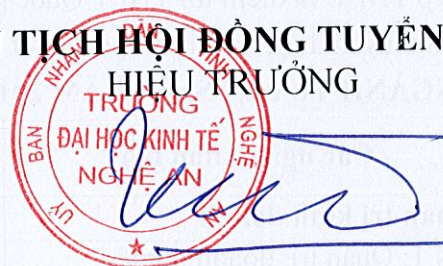 TỊCH HỘI ĐỒNG TUYỂN
HIỆU TRƯỞNG
ỦY BAN NHÂN DÂN TỈNH NGHỆ AN
TRƯỜNG
ĐẠI HỌC KINH TẾ
NGHỆ AN